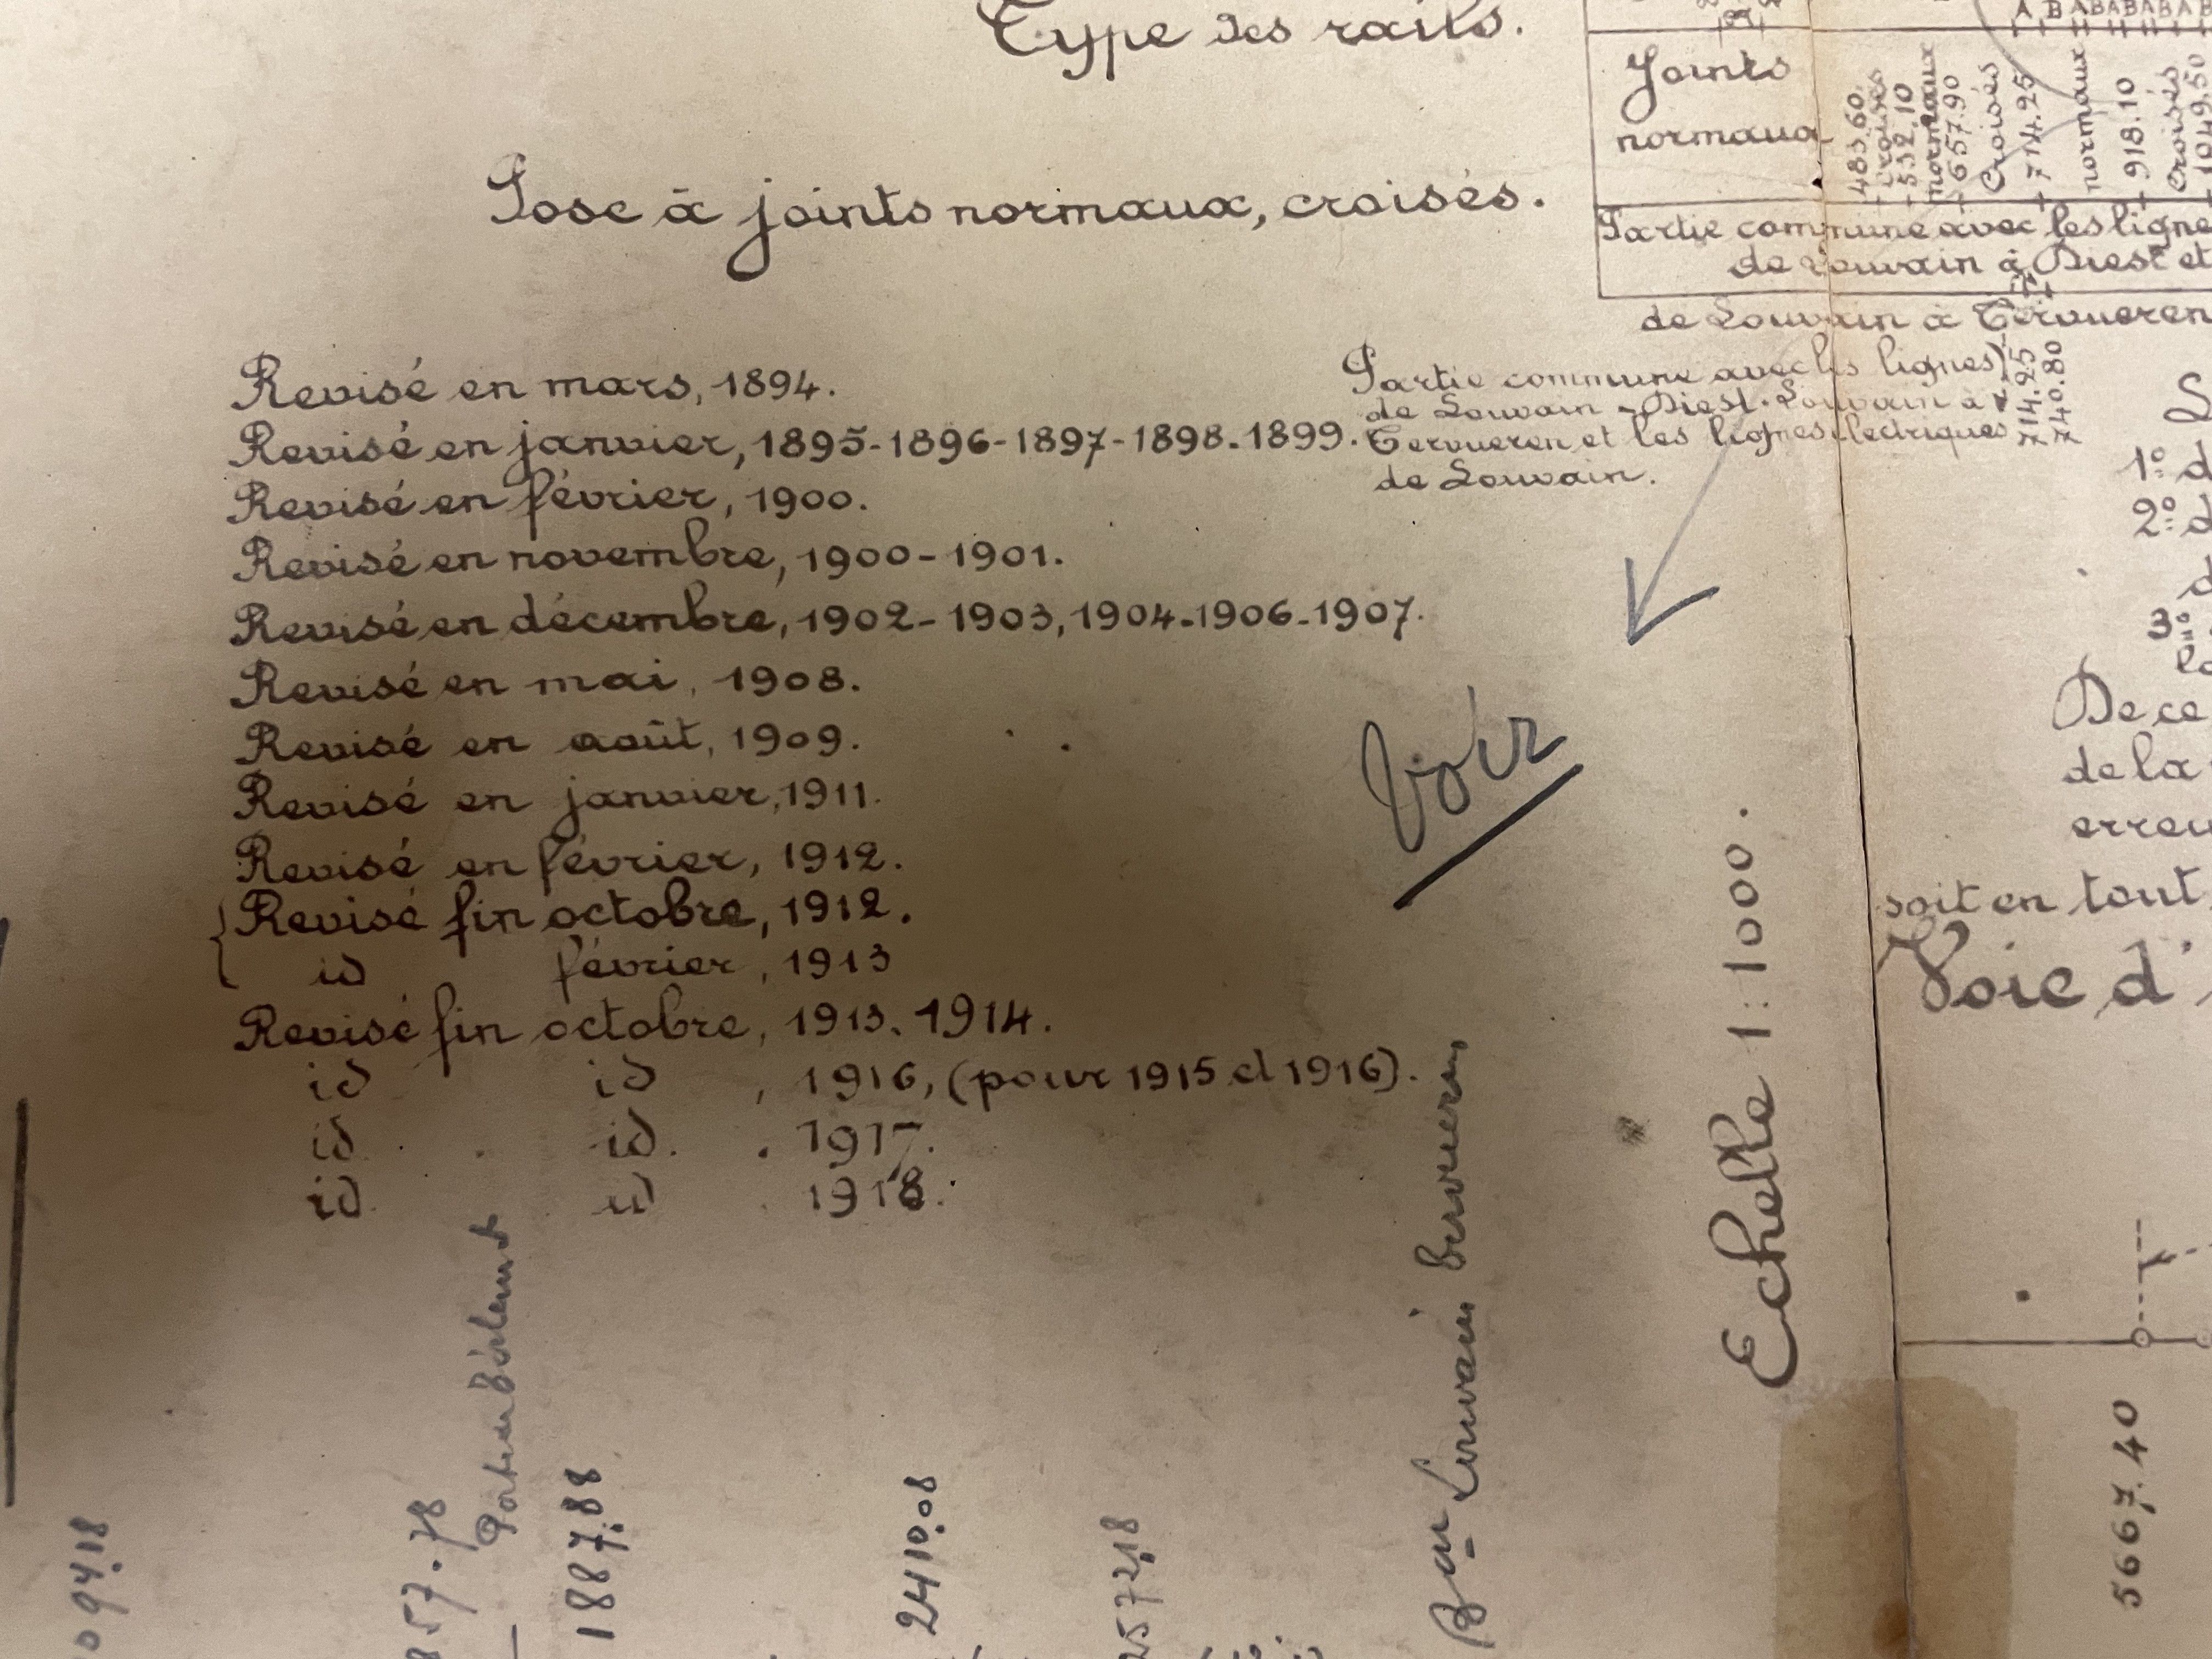 Type des rails.
Pose à joints normaux, croisés.
Revisé en mars, 1894.
Revisé en janvier, 1895-1896-1897-1898.1899.
Revisé en février, 1900.
Revisé en novembre, 1900-1901.
Revisé en décembre, 1902-1903, 1904-1906-1907.
Revisé en mai, 1908.
Revisé en août, 1909.
Revisé en janvier, 1911.
Revisé en février, 1912.
Revisé fin octobre, 1912.
id février, 1913
Revisé fin octobre, 1913. 1914.
id id , 1916, (pour 1915 et 1916).
id. id. . 1917.
id. id . 1918.
Partie commune avec les lignes
de Louvain - Diest. Louvain à
Tervueren et les lignes électriques
de Louvain.
714.25
740.80
Joints
normaux
483.60
croisés
532.10
normaux
657.90
Croisés
714.25
normaux
918.10
Croisés
1049.50
A B A B A B A B A B
Partie commune avec les ligne
de Louvain à Diest et
de Louvain à Tervueren
Voir
Echelle 1:1000.
1º d
2º d
d
3º
De ce
de la
erreu
soit en tout
Voie d'
094.18
857.78
1887.88
2410.08
2572.18
Louvain Tervueren
5667.40